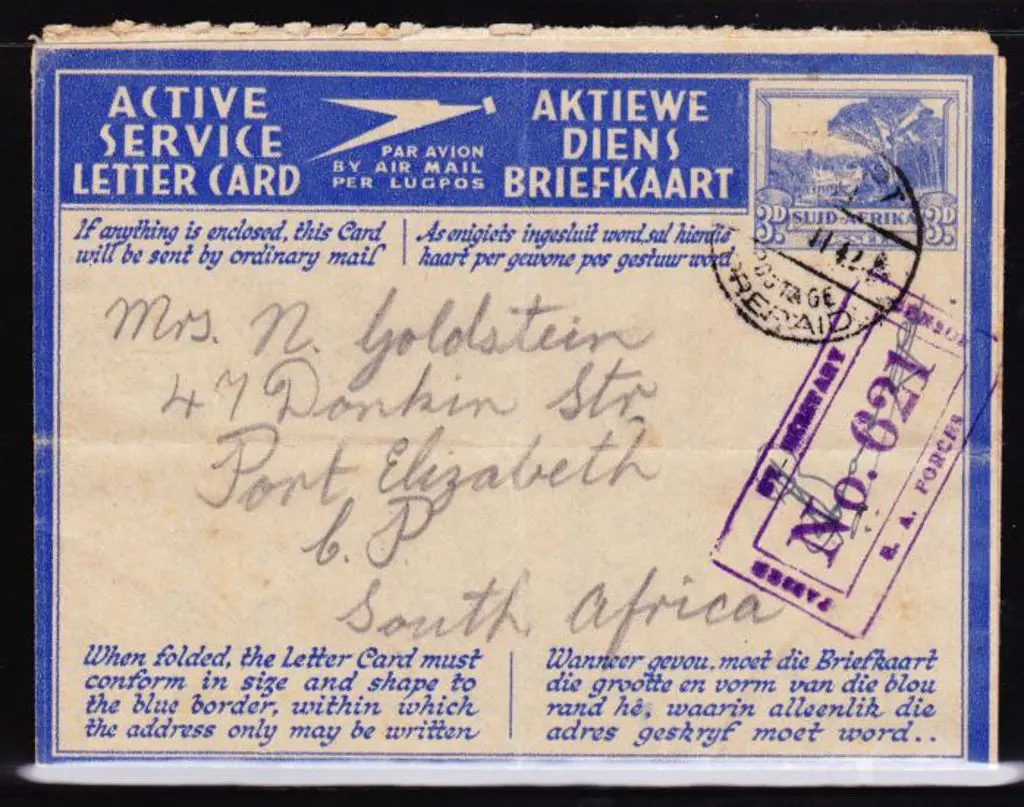 ACTIVE
SERVICE
LETTER CARD
PAR AVION
BY AIR MAIL
PER LUGPOS
AKTIEWE
DIENS
BRIEFKAART
3D SUID-AFRIKA 3D
If anything is enclosed, this Card
will be sent by ordinary mail
As enigiets ingesluit word, sal hierdie
kaart per gewone pos gestuur word
POSTAGE
PREPAID
Mrs. N. Goldstein
47 Donkin Str
Port Elizabeth
C. P.
South Africa
PASSED
BY MILITARY
CENSOR
No. 621
S. A. FORCES
When folded, the Letter Card must
conform in size and shape to
the blue border, within which
the address only may be written
Wanneer gevou, moet die Briefkaart
die grootte en vorm van die blou
rand hê, waarin alleenlik die
adres geskryf moet word..